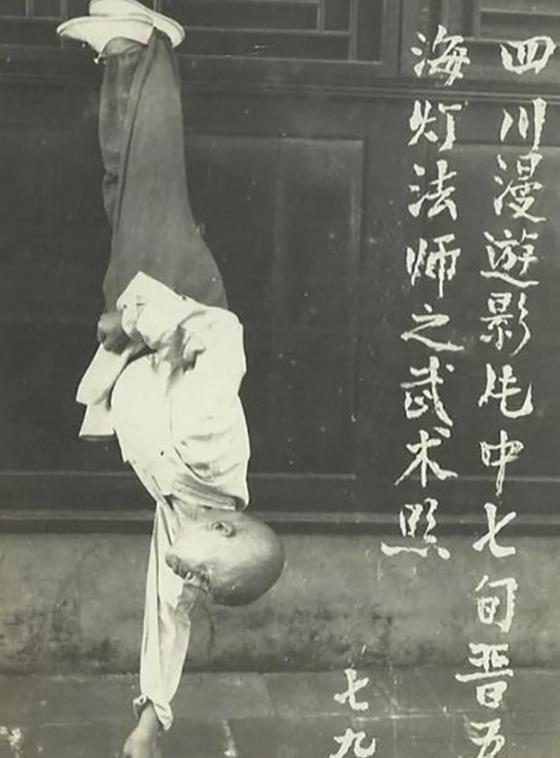 四川漫遊影片中七旬晋五
海灯法师之武术照
七九